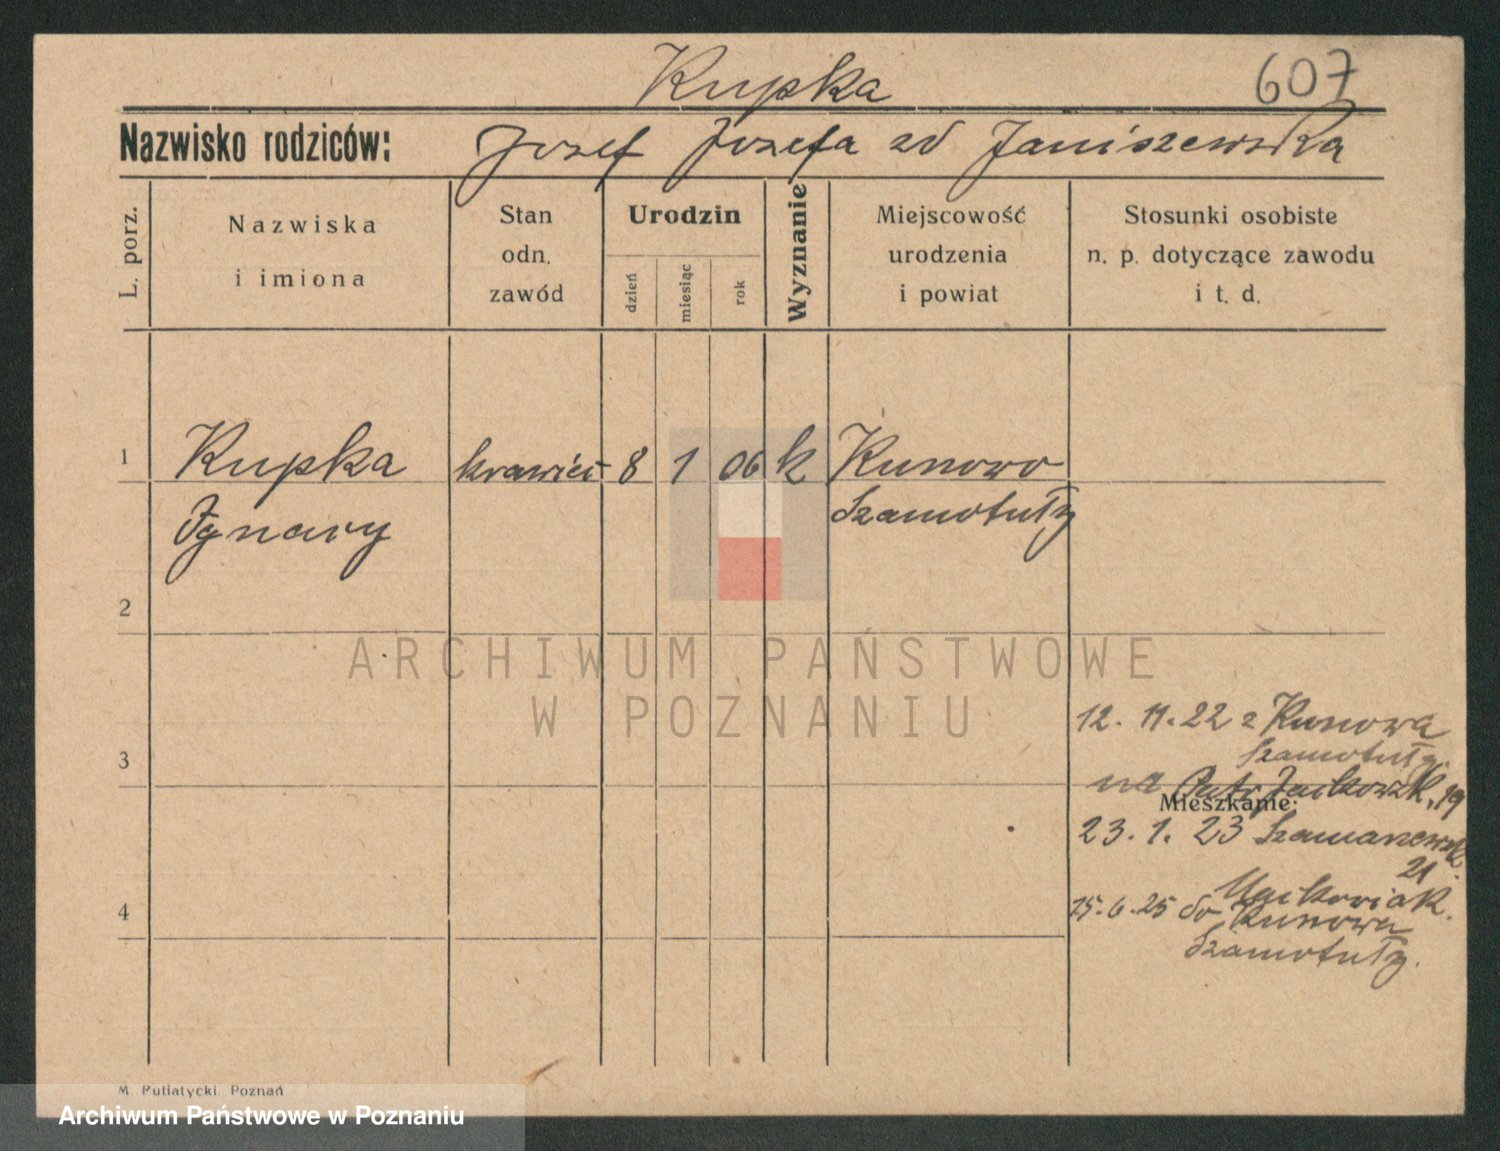 Kupka 607
Nazwisko rodziców: Jozef Jozefa zd Janiszewska
L. porz.
Nazwiska
i imiona
Stan
odn.
zawód
Urodzin
dzień
miesiąc
rok
Wyznanie
Miejscowość
urodzenia
i powiat
Stosunki osobiste
n. p. dotyczące zawodu
i t. d.
1 Kupka krawiec 8 1 06 k Kunowo
Ignacy Szamotuły
2
ARCHIWUM PAŃSTWOWE
W POZNANIU
12. 11. 22 z Kunowa
Szamotuły
3
na Jackowsk. 19
Mieszkanie:
23. 1. 23
21
4
Maćkowiak.
15.6.25 do Kunowa
Szamotuły.
M. Putiatycki. Poznań
Archiwum Państwowe w Poznaniu